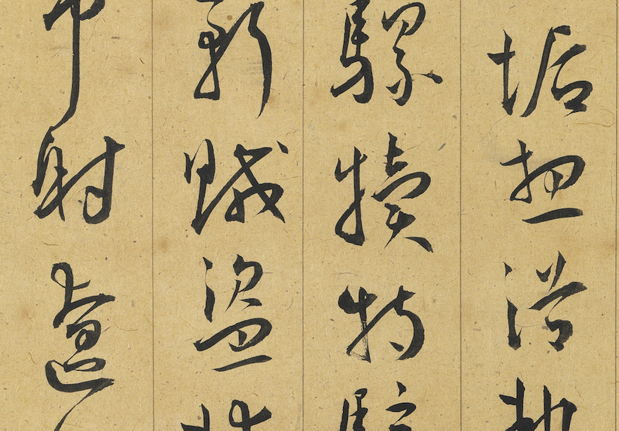 垢想浴執
騾犢特駭
斬賊盜捕
布射遼